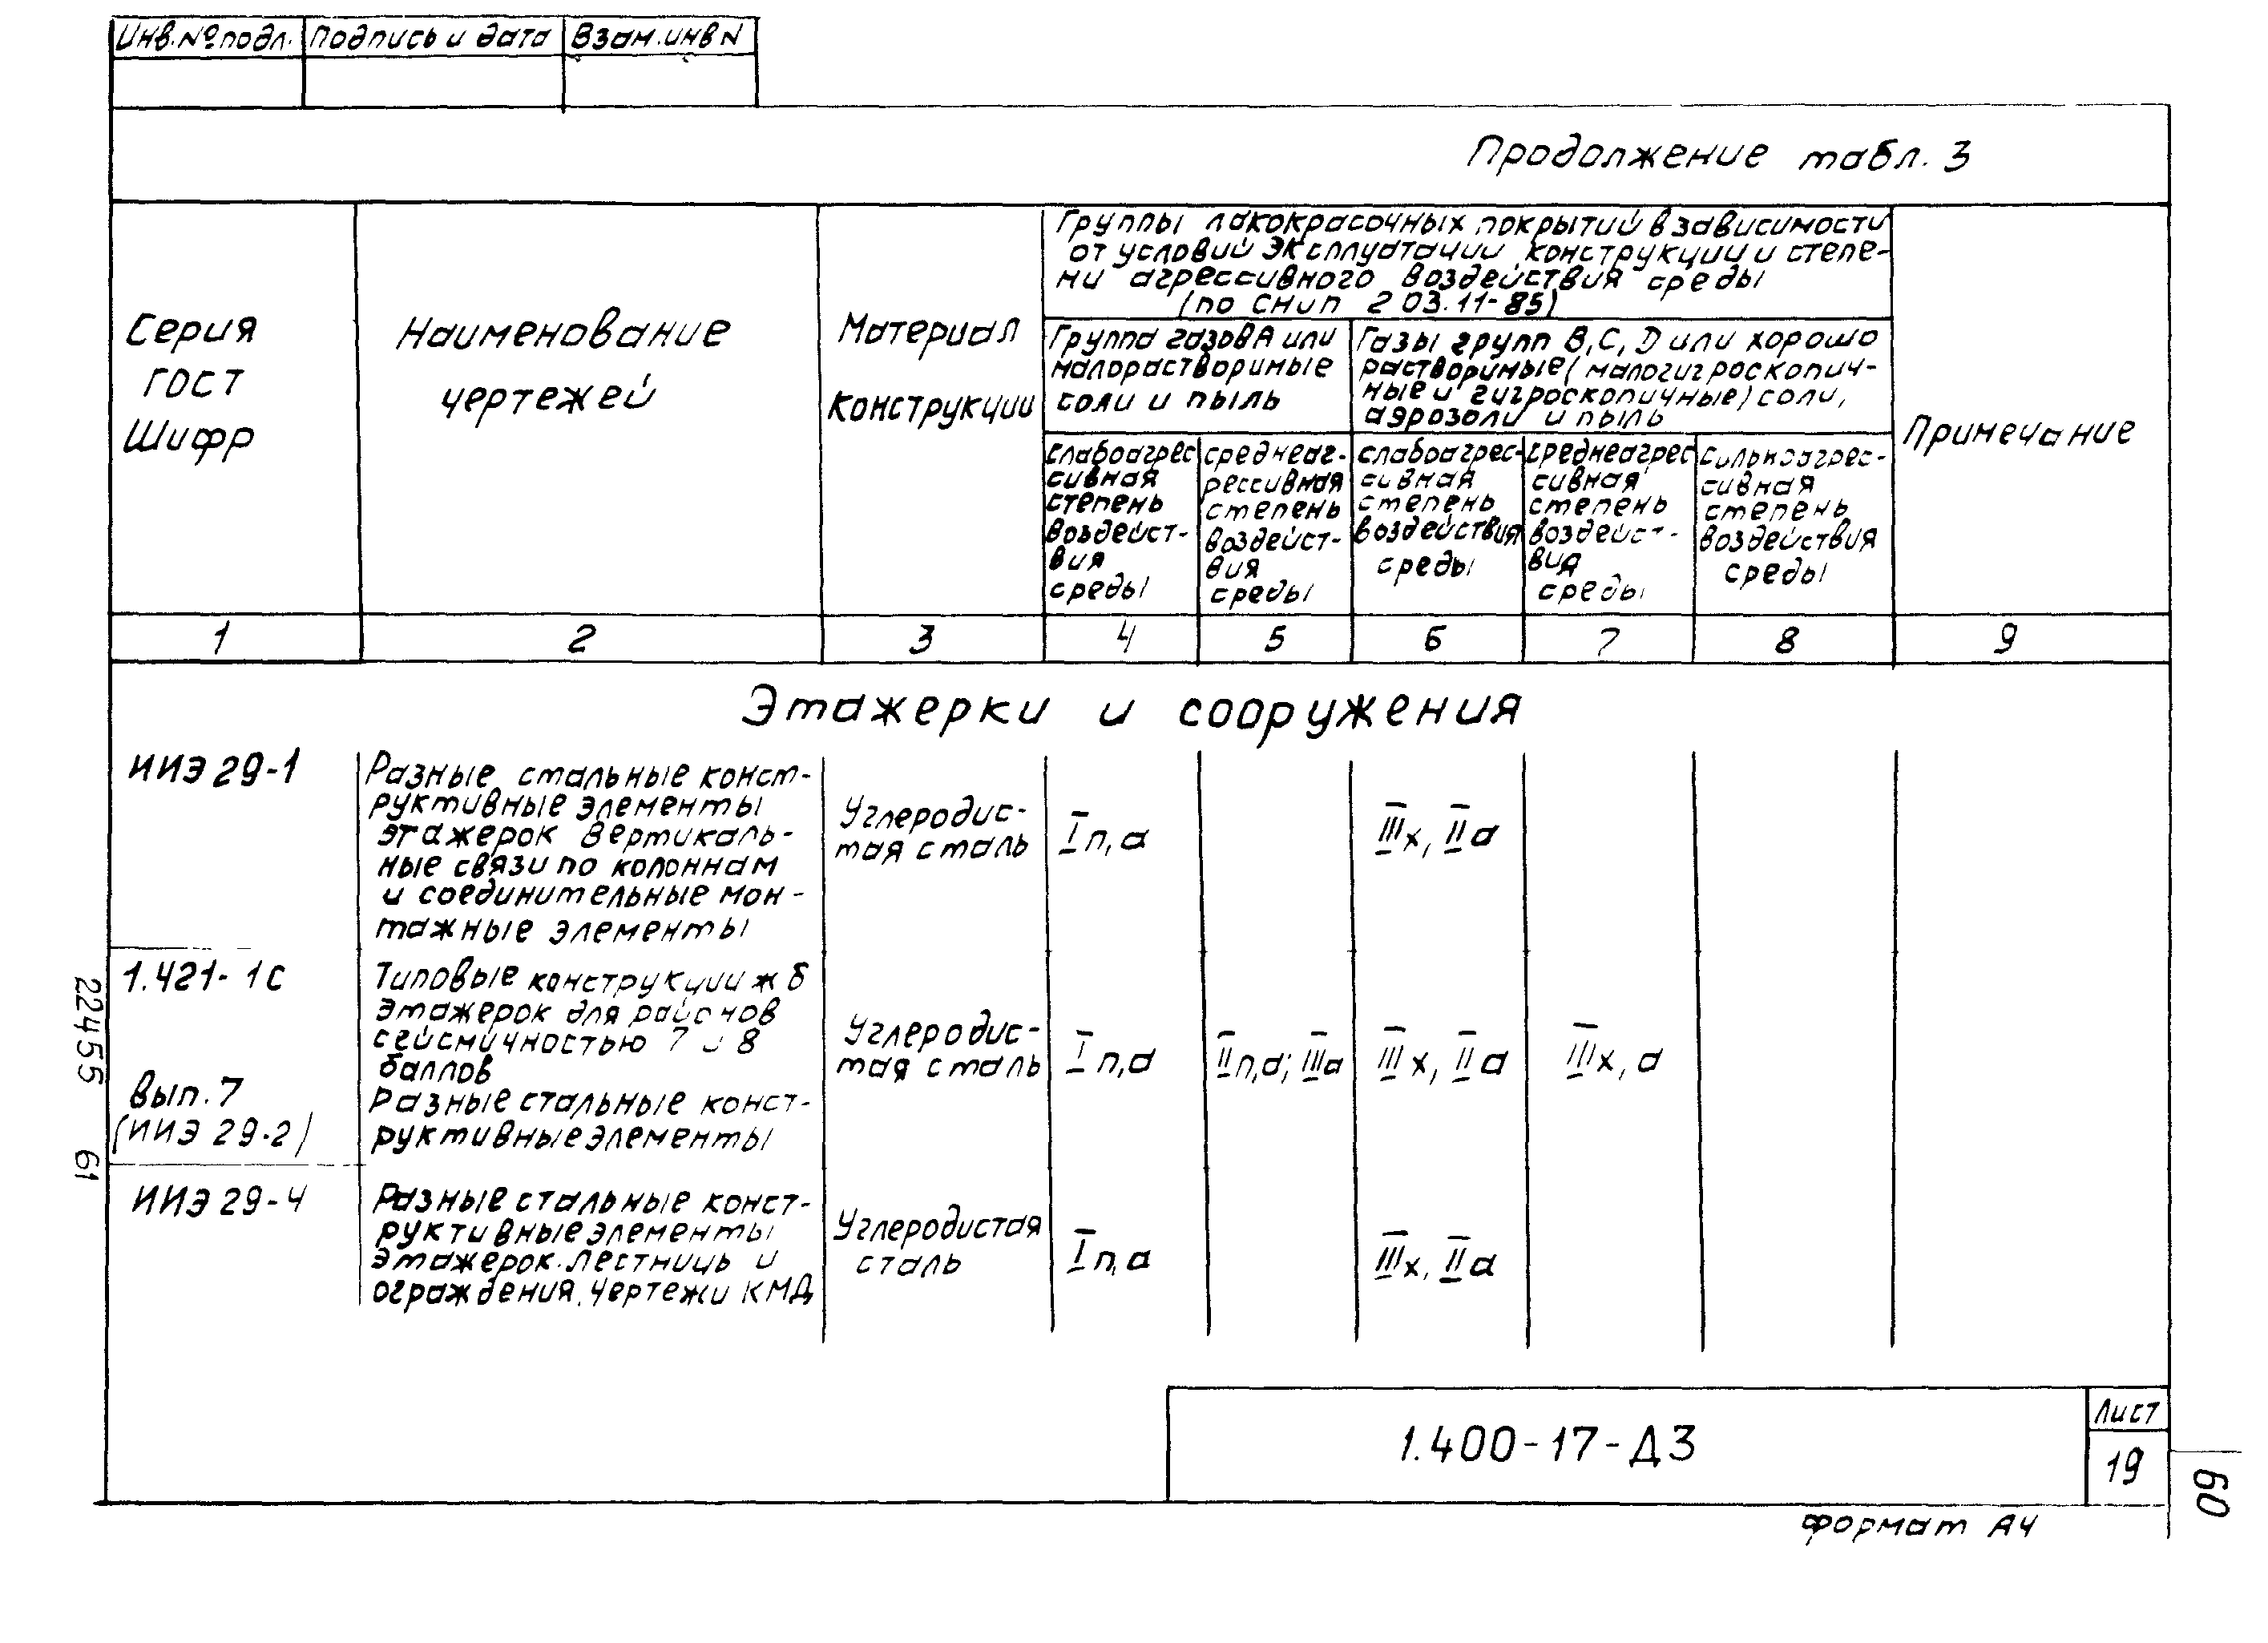 Инв. № подл. Подпись и дата Взам. инв N
Продолжение табл. 3
Серия
ГОСТ
Шифр
Наименование
чертежей
Материал
конструкции
Группы лакокрасочных покрытий в зависимости
от условий эксплуатации конструкции и степе-
ни агрессивного воздействия среды
(по СНиП 2 03.11-85)
Группа газов А или
малорастворимые
соли и пыль
Газы групп В, С, D или хорошо
растворимые (малогигроскопич-
ные и гигроскопичные) соли,
аэрозоли и пыль
слабоагрес
сивная
степень
воздейст-
вия
среды
среднеаг-
рессивная
степень
воздейст-
вия
среды
слабоагрес-
сивная
степень
воздействия
среды
среднеагрес
сивная
степень
воздейст-
вия
среды
сильноагрес-
сивная
степень
воздействия
среды
Примечание
1 2 3 4 5 6 7 8 9
Этажерки и сооружения
ИИЭ 29-1
Разные стальные конст-
руктивные элементы
этажерок вертикаль-
ные связи по колоннам
и соединительные мон-
тажные элементы
Углеродис-
тая сталь
I п, а
III х, II а
1.421-1С
Вып. 7
(ИИЭ 29-2)
Типовые конструкции ж б
этажерок для районов
сейсмичностью 7 и 8
баллов
Разные стальные конст-
руктивные элементы
Углеродис-
тая сталь
I п, а
II п, а; III а
III х, II а
III х, а
ИИЭ 29-4
Разные стальные конст-
руктивные элементы
этажерок. Лестницы и
ограждения. Чертежи КМД
Углеродистая
сталь
I п, а
III х, II а
22455 61
1.400-17-Д3
Лист
19
60
Формат А4